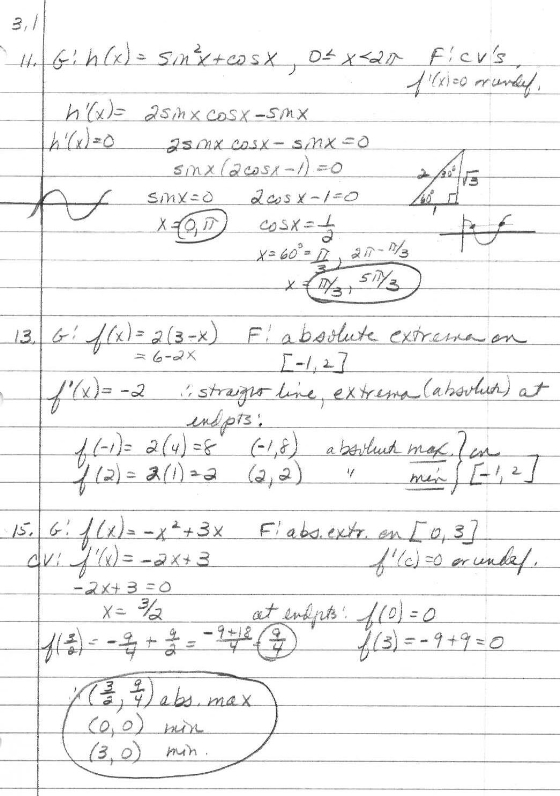 3.1
11. G: h(x) = sin²x + cosx, 0 ≤ x < 2π F: cv's,
f'(x)=0 or undef.
h'(x) = 2sinx cosx - sinx
h'(x)=0 2sinx cosx - sinx = 0
sinx(2cosx - 1) = 0
sinx=0 2cosx-1=0
x = 0, π cosx = 1/2
2 30° √3 60° 1
x = 60° = π/3, 2π - π/3
x = π/3, 5π/3
13. G: f(x) = 2(3-x) F: absolute extrema on
= 6-2x [-1,2]
f'(x) = -2 ∴ straight line, extrema (absolute) at
endpts:
f(-1) = 2(4) = 8 (-1,8) absolute max. } on
f(2) = 2(1) = 2 (2,2) " min } [-1,2]
15. G: f(x) = -x² + 3x F: abs. extr. on [0,3]
CV: f'(x) = -2x+3 f'(c)=0 or undef.
-2x+3=0
x = 3/2 at endpts: f(0) = 0
f(3/2) = -9/4 + 9/2 = -9+18/4 = 9/4 f(3) = -9+9=0
∴ (3/2, 9/4) abs. max
(0,0) min
(3,0) min.